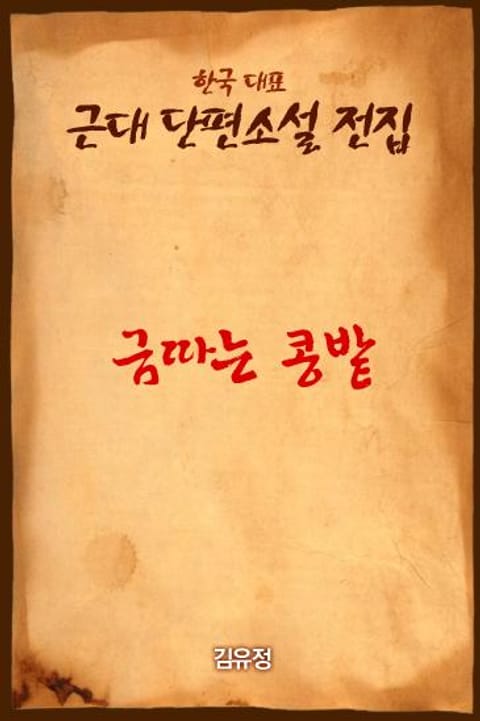 한국 대표
근대 단편소설 전집
금따는 콩밭
김유정